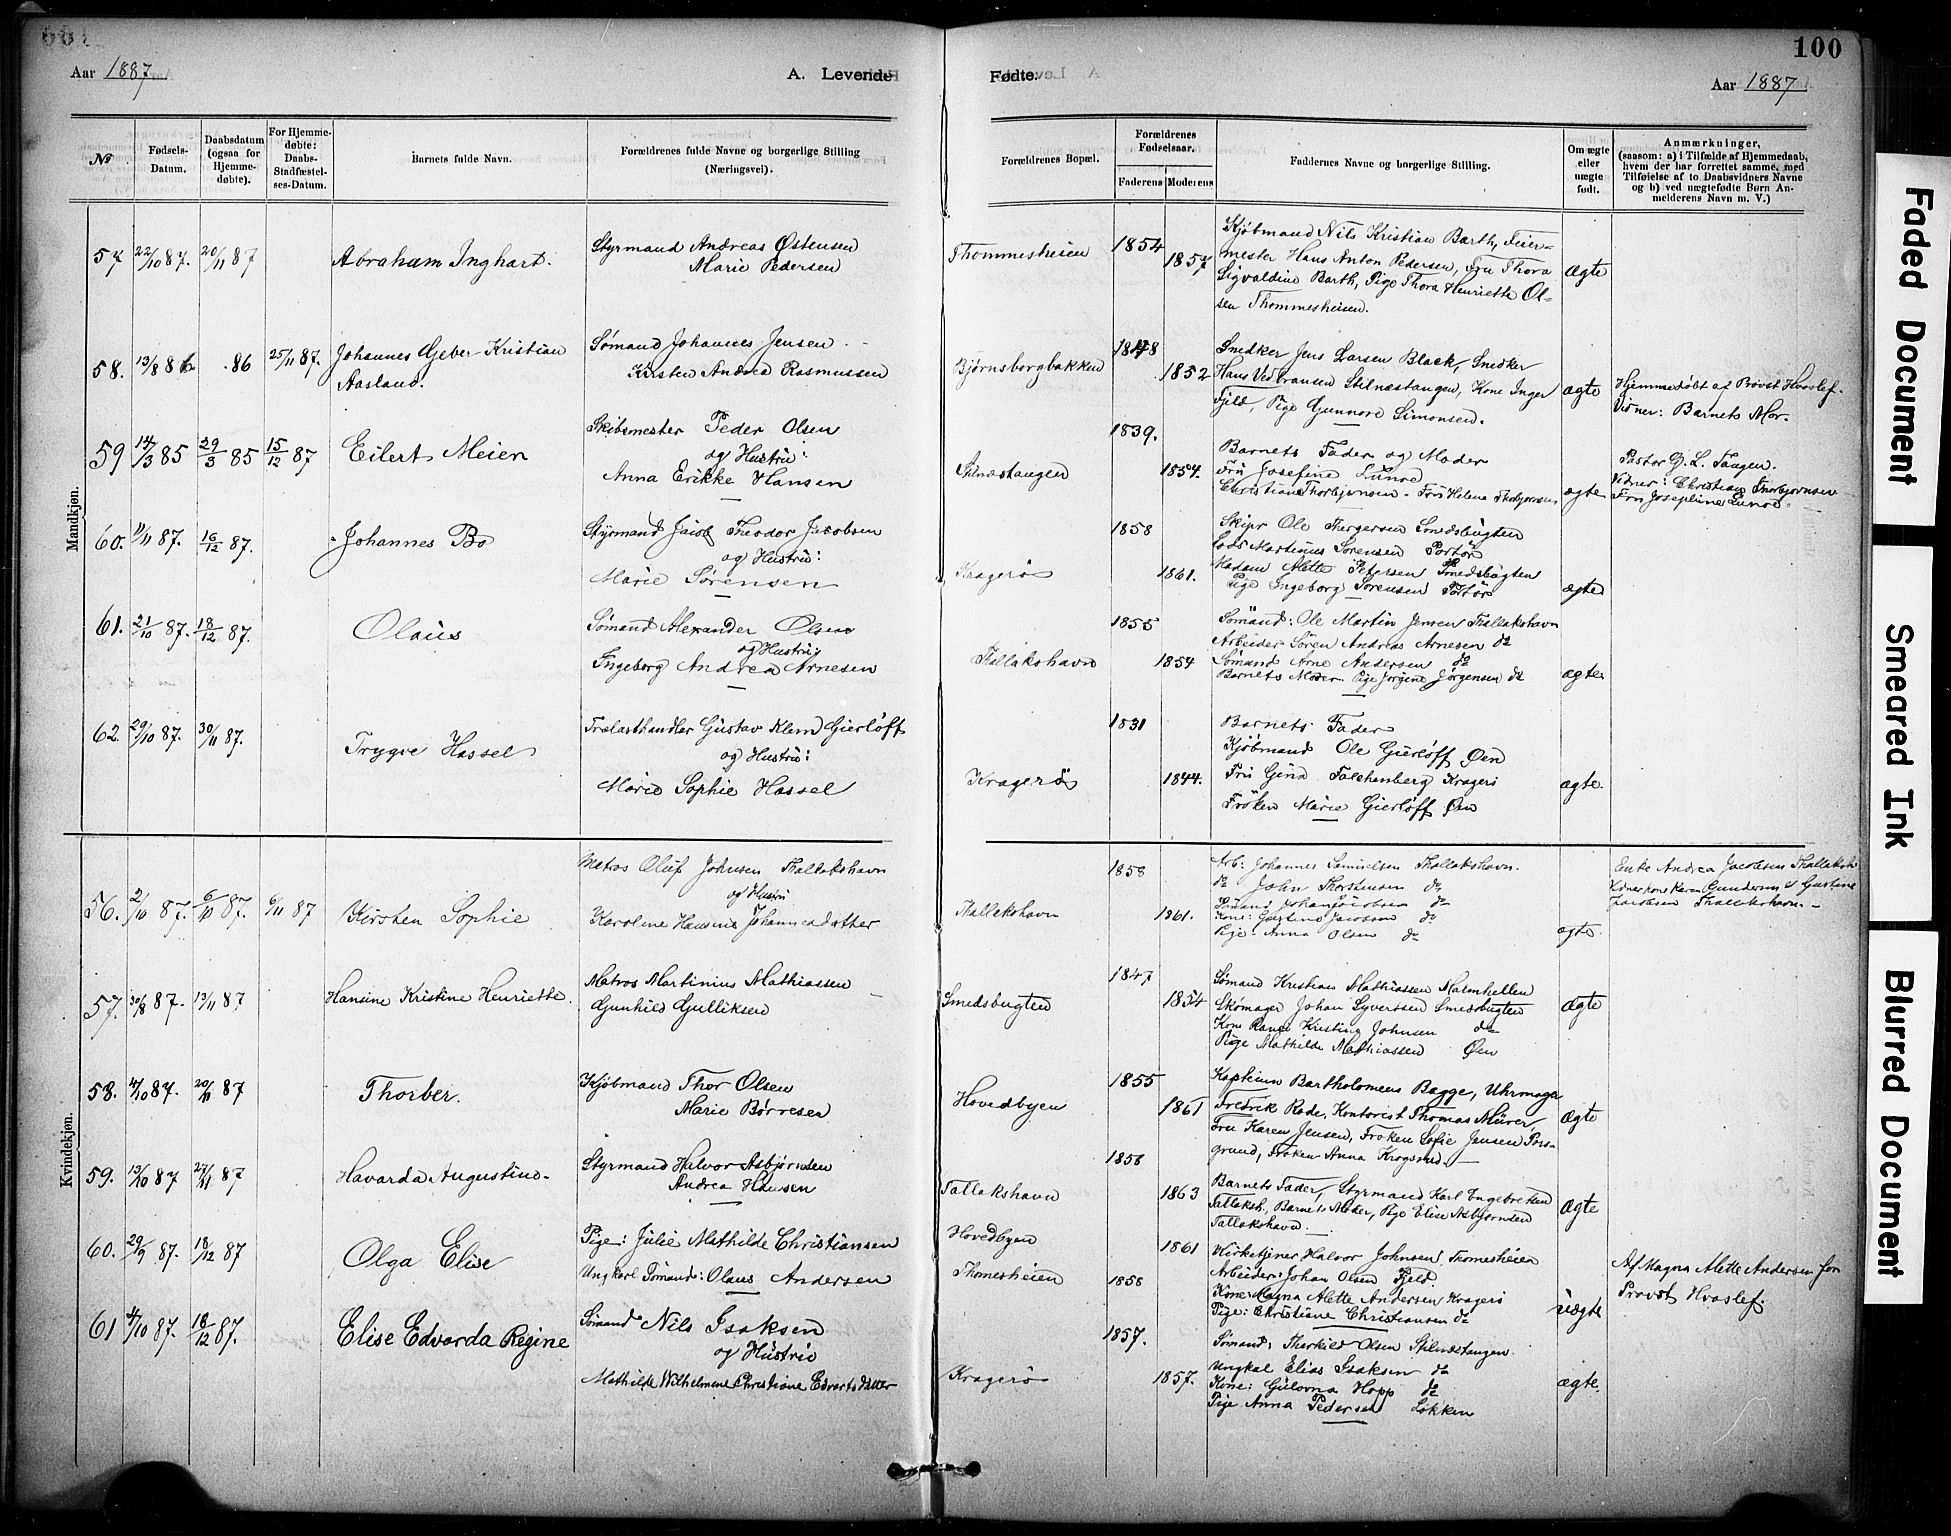 100
Aar 1887
A. Levende
Fødte.
Aar 1887
№
Fødsels-
Datum.
Daabsdatum
(ogsaa for
Hjemme-
døbte).
For Hjemme-
døbte:
Daabs-
Stadfæstel-
ses-Datum.
Barnets fulde Navn.
Forældrenes fulde Navne og borgerlige Stilling
(Næringsvei).
Forældrenes Bopæl.
Forældrenes
Fødselsaar.
Faderens
Moderens
Faddernes Navne og borgerlige Stilling.
Om ægte
eller
uægte
født.
Anmærkninger,
(saasom: a) i Tilfælde af Hjemmedaab,
hvem der har forrettet samme, med
Tilføielse af to Daabsvidners Navne
og b) ved uægtefødte Børn An-
melderens Navn m. V.)
Mandkjøn.
57 22/10 87. 20/11 87
Abraham Inghart.
Styrmand Andreas Østensen
Marie Pedersen
Thommesheien
1854
1857
Kjøbmand Nils Kristian Barth, Feier-
mester Hans Anton Pedersen, Fru Thora
Sigvaldine Barth, Pige Thora Henriette Ol-
sen Thommesheien.
Ægte
58. 13/8 86 .86 25/11 87.
Johannes Gjeber Kristian
Aasland.
Sømand Johannes Jensen
Kirsten Andrea Rasmussen
Bjørnsborgbakken
1848
1852
Snedker Jens Larsen Black, Snedker
Hans Vedbransen Stilnæstangen, Kone Inger
Fjeld, Pige Gunnore Simonsen.
ægte
Hjemmedøbt af Provst Hvoslef.
Vidner: Barnets Mor.
59 14/3 85 29/3 85 15/12 87
Eilert Meier
Skibsmester Peder Olsen
og Hustru:
Anna Erikke Hansen
Stilnæstangen
1839.
1854.
Barnets Fader og Moder
Fru Josefine Lunoe
Christiane Thorbjørnsen - Fru Helene Thorbjørnsen
ægte
Pastor G. L. Tangen.
Vidner: Christiane Thorbjørnsen
Fru Josephine Lunoe.
60. 11/11 87. 16/12 87.
Johannes Bo
Styrmand Jacob Theodor Jacobsen
og Hustru:
Marie Sørensen
Kragerø
1858
1861.
Skipr Ole Thergersen Smedsbugten
Lods Martinus Sørensen Portør
Madam Mette Petersen Smedsbugten
Pige Ingeborg Sørensen Portør
ægte
61. 21/10 87. 18/12 87.
Olaus
Sømand Alexander Olsen
og Hustru:
Ingeborg Andrea Arnesen
Tallakshavn
1855
1854
Sømand: Ole Martin Jensen Tallakshavn
Arbeider Søren Andreas Arnesen do
Sømand Arne Andersen do
Barnets Moder. Pige Jørgine Jørgensen do
ægte
62. 29/10 87. 30/11 87.
Trygve Hassel
Trælasthandler Gustav Klem Gierløff
og Hustru:
Marie Sophie Hassel
Kragerø
1831
1844.
Barnets Fader
Kjøbmand Ole Gierløff Øen
Fru Gina Falchenberg Kragerø
Frøken Marie Gierløff Øen
ægte.
Kvindekjøn.
56. 2/10 87. 6/10 87. 6/11 87
Kirsten Sophie
Matros Oluf Johnsen Thallakshavn
og Hustru
Karoline Hansine Johannesdatter
Thallakshavn
1858
1861.
Arb: Johannes Samuelsen Thallakshavn.
do John Thorstensen do
Sømand Johan Jacobsen do
Kone: Gustine Jacobsen do
Pige: Anna Olsen do
ægte.
Enke Andrea Jacobsen Thallaksh
Vidner Kone Karen Gundersen & Gustine
Jacobsen Thallakshavn. -
57. 30/8 87. 13/11 87
Hansine Kristine Henriette.
Matros Martinius Mathiassen
Gunhild Gulliksen
Smedsbugten
1847
1854
Sømand Kristian Mathiassen Marmhellen
Skomager Johan Syvertsen Smedsbugten
Kone Kristine Johnsen do
Pige Mathilde Mathiassen Øen
Ægte
58. 4/10 87. 20/11 87
Thorber.
Kjøbmand Thor Olsen
Marie Børresen
Hovedbyen
1855
1861
Kaptein Bartholomeus Bagge, Uhrmager
Fredrik Rode, Kontorist Thomas Mürer,
Fru Karen Jensen, Frøken Sofie Jensen Pors-
grund, Frøken Anna Krogsrud. -
Ægte
59. 13/10 87 27/11 87
Havarda Augustine.
Styrmand Halvor Asbjørnsen
Andrea Hansen
Tallakshavn
1856
1863
Barnets Fader, Styrmand Karl Engebretsen
Tallaksh., Barnets Moder, Pige Elise Asbjørnsen
Tallakshavn.
Ægte
60. 29/9 87. 18/12 87
Olga Elise
Pige: Julie Mathilde Christiansen
Ungkarl Sømand: Olaus Andersen
Hovedbyen
Thomesheien
1861
1858
Kirketjener Halvor Johnsen Thomesheien
Arbeider: Johan Olsen Fjeld.
Kone: Magna Alette Andersen Kragerø
Pige: Christiane Christiansen do
uægte
Af Magna Alette Andersen for
Provst Hvoslef.
61 4/10 87. 18/12 87.
Elise Edvarda Regine
Sømand Nils Isaksen
og Hustru
Mathilde Wilhelmine Christiane Edvartsdatter
Kragerø
1857.
1857.
Sømand: Therkild Olsen Stilnæstangen.
Ungkal Elias Isaksen do
Kone: Gulovna Hopp do
Pige Anna Pedersen Løkken
ægte.
Faded Document
Smeared Ink
Blurred Document